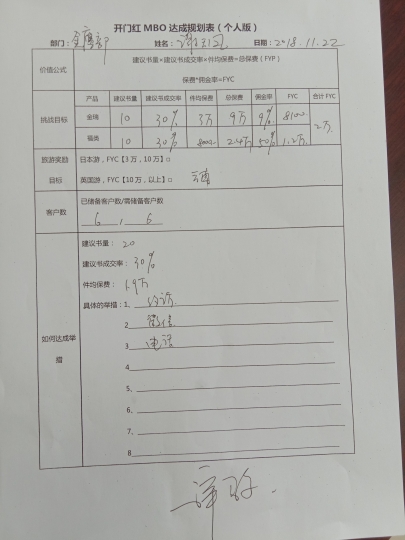 开门红 MBO 达成规划表（个人版）
部门： 姓名： 日期：2018.11.22
价值公式
建议书量×建议书成交率×件均保费=总保费（FYP）
保费*佣金率=FYC
挑战目标
产品 建议书量 建议书成交率 件均保费 总保费 佣金率 FYC 合计 FYC
金瑞 10 30% 3万 9万 9% 8100
2万
福类 10 30% 8000 2.4万 50% 1.2万
旅游奖励目标
日本游，FYC【3 万，10 万】□
英国游，FYC【10 万，以上】□
客户数
已储备客户数/需储备客户数
6 , 6
如何达成举措
建议书量： 20
建议书成交率： 30%
件均保费： 1.9万
具体的举措：1、约访
2 微信
3、电话
4、
5、
6、
7、
8